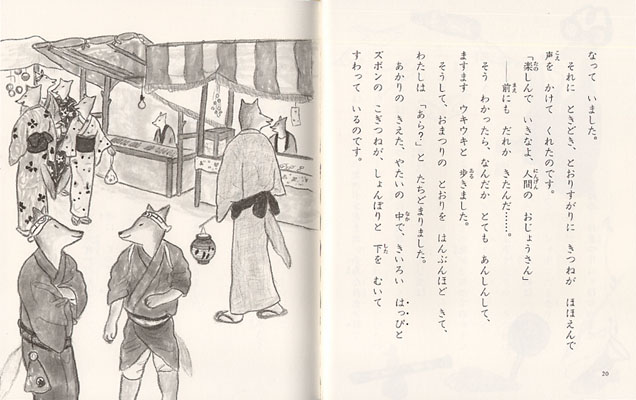 なって いました。
それに ときどき、とおりすがりに きつねが ほほえんで
声を かけて くれたのです。
「楽しんで いきなよ、人間の おじょうさん」
――前にも だれか きたんだ……。
そう わかったら、なんだか とても あんしんして、
ますます ウキウキと 歩きました。
そうして、おまつりの とおりを はんぶんほど きて、
わたしは 「あら？」と たちどまりました。
あかりの きえた、やたいの 中で、きいろい はっぴと
ズボンの こぎつねが、しょんぼりと 下を むいて
すわって いるのです。
20